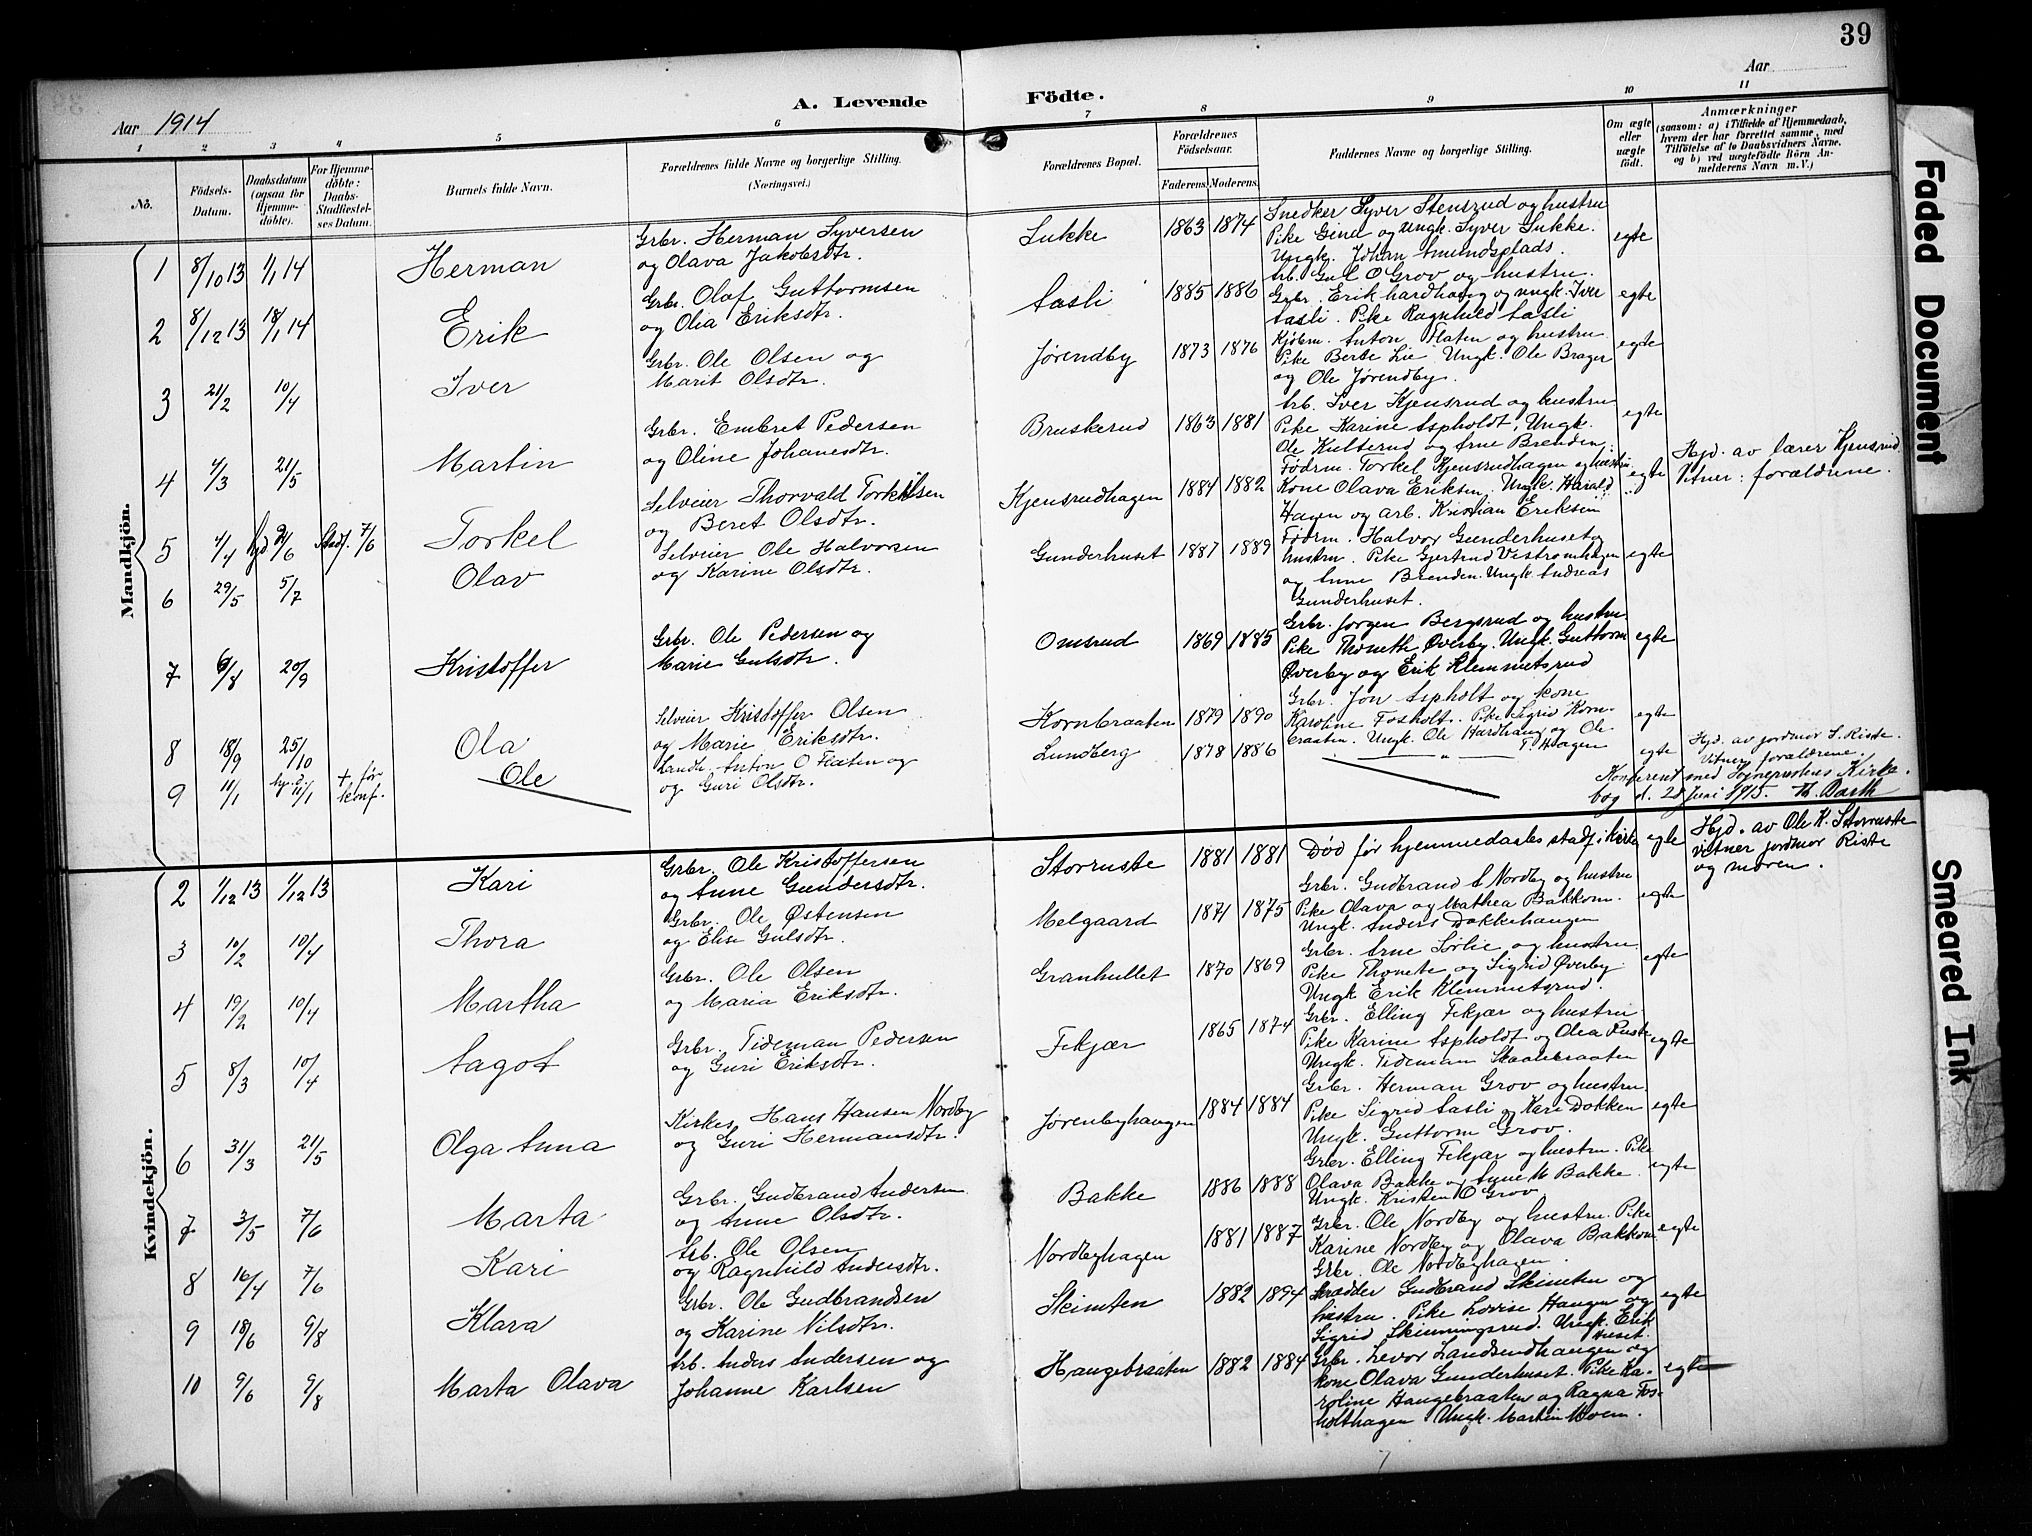 39
Aar 1914
A. Levende Födte.
Aar
1 2 3 4 5 6 7 8 9 10 11
No.
Födsels-Datum.
Daabsdatum (ogsaa for Hjemme-döbte).
For Hjemme-döbte: Daabs-Stadfæstel-ses Datum.
Barnets fulde Navn.
Forældrenes fulde Navne og borgerlige Stilling.
(Næringsvei.)
Forældrenes Bopæl.
Forældrenes Födselsaar.
Faderens. Moderens.
Faddernes Navne og borgerlige Stilling.
Om ægte eller uægte födt.
Anmærkninger
(saasom: a) i Tilfælde af Hjemmedaab,
hvem der har forrettet samme, med
Tilföielse af to Daabsvidners Navne,
og b) ved uægtefödte Börn An-
melderens Navn m. V.)
Mandkjön.
1 8/10 13 1/1 14 Herman
Grbr. Herman Syversen
og Olava Jakobsdtr.
Lukke 1863 1874
Snedker Syver Stensrud og hustru
Pike Gina og ungk. Syver Lukke.
Ungk. Johan Amundsplads.
egte
2 8/12 13 18/1 14 Erik
Grbr. Olaf Guttormsen
og Olia Eriksdtr.
Aasli 1885 1886
Arb. Gul O Grov og hustru.
Grbr. Erik hardhaug og ungk. Iver
Aasli. Pike Ragnhild Aasli
egte
3 21/2 10/4 Iver
Grbr. Ole Olsen og
Marit Olsdtr.
Jørendby 1873 1876
Kjøbm. Anton Flaten og hustru
Pike Berte Lie. Ungk. Ole Brager
og Ole Jørendby.
egte
4 4/3 21/5 Martin
Grbr. Embret Pedersen
og Oline Johanesdtr.
Bruskerud 1863 1881
Arb. Iver Kjensrud og hustru
Pike Karine Aspholdt, Ungk.
Ole Kulterud og Arne Brenden.
egte
5 4/4 hjd 2/6 Stadf. 7/6 Torkel
Selveier Thorvald Torkilsen
og Beret Olsdtr.
Kjensrudhagen 1884 1882
Fødrm. Torkel Kjensrudhagen og hustru
Kone Olava Eriksen. Ungk. Harald
Hagen og arb. Kristian Eriksen
egte
Hjd. av lærer Kjensrud
Vitner: forældrene.
6 29/5 5/7 Olav
Selveier Ole Halvorsen
og Karine Olsdtr.
Gunderhuset 1887 1889
Fødrm. Halvor Gunderhuset og
hustru. Pike Gjertrud Vestromhagen
og Anne Brenden. Ungk. Andreas
Gunderhuset.
egte
7 6/8 20/9 Kristoffer
Grbr. Ole Pedersen og
Marie Gulsdtr.
Omsrud 1869 1885
Grbr. Jørgen Bergsrud og hustru
Pike Thonette Øverby. Ungk. Guttorm
Øverby og Erik Klemmetsrud
egte
8 18/9 25/10 Ola
Selveier Kristoffer Olsen
og Marie Eriksdtr.
Kornbraaten 1879 1890
Grbr. Jon Aspholt og kone
Karoline Fosholt. Pike Sigrid Korn-
braaten. Ungk. Ole Hardhaug og Ole
T Haagen
egte
9 11/1 11/1 + før konf. Ole
Landh. Anton O Flaten og
og Guri Olsdtr.
Lundberg 1878 1886
egte
Hjd. av jordmor S. Riste.
Vitner forældrene.
Konferert med Sogneprestens Kirke-
bog d. 28 Juni 1915. Th. Barth
Kvindekjön.
2 1/12 13 1/12 13 Kari
Grbr. Ole Kristoffersen
og Anne Gundersdtr.
Storruste 1881 1881
Død før hjemmedaabs stadf. i kirke
egte
Hjd. av Ole K. Storruste
vitner jordmor Riste
og moren.
3 10/2 10/4 Thora
Grbr. Ole Østensen
og Elise Gulsdtr.
Melgaard 1871 1875
Grbr. Gudbrand A Nordby og hustru
Pike Olava og Mathea Bakkom.
Ungk. Anders Dokkehaugen
egte
4 19/2 10/4 Martha
Grbr. Ole Olsen
og Maria Eriksdtr.
Granhullet 1870 1869
Grbr. Arne Sørlie og hustru.
Pike Thonete og Sigrid Øverby.
Ungk Erik Klemmetsrud.
egte
5 8/3 10/4 Aagot
Grbr. Tideman Pedersen
og Guri Eriksdtr.
Fekjær 1865 1874
Grbr. Elling Fekjær og hustru
Pike Karine Aspholdt og Olea Ruste
Ungk. Tideman Skaalebraaten
egte
6 31/3 21/5 Olga Anna
Kirkes. Hans Hansen Nordby
og Guri Hermansdtr.
Jørenbyhaugen 1884 1884
Grbr. Herman Grov og hustru
Pike Sigrid Aasli og Kari Dokken
Ungk. Guttorm Grov.
egte
7 3/5 7/6 Marta
Grbr. Gudbrand Andersen
og Anne Olsdtr.
Bakke 1886 1888
Grbr. Elling Fekjær og hustru. Pike
Olava Bakke og Anne M Bakke.
Ungk. Kristen O Grov
egte
8 16/4 7/6 Kari
Arb. Ole Olsen
og Ragnhild Andersdtr.
Nordbyhagen 1881 1887
Grbr. Ole Nordby og hustru. Pike
Karine Nordby og Olava Bakkom
Grbr. Ole Nordbyhagen.
egte
9 18/6 9/8 Klara
Grbr. Ole Gudbrandsen
og Karine Nilsdtr.
Skimten 1882 1894
Skrædder Gudbrand Skimten og
hustru. Pike Lovise Haugen og
Sigrid Skinningsrud. Ungk. Erik
Huset.
egte
10 9/6 9/8 Marta Olava
Arb. Anders Andersen og
Johanne Karlsen
Haugebraaten 1882 1884
Grbr. Levor Landsendhaugen og
kone Olava Gunderhuset. Pike Ka-
roline Haugebraaten og Ragna Fos-
holthagen Ungk. Martin Moen.
egte
Faded Document
Smeared Ink